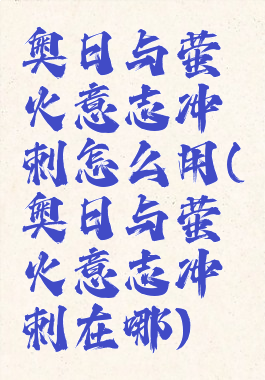 奥日与萤
火意志冲
刺怎么用(
奥日与萤
火意志冲
刺在哪)